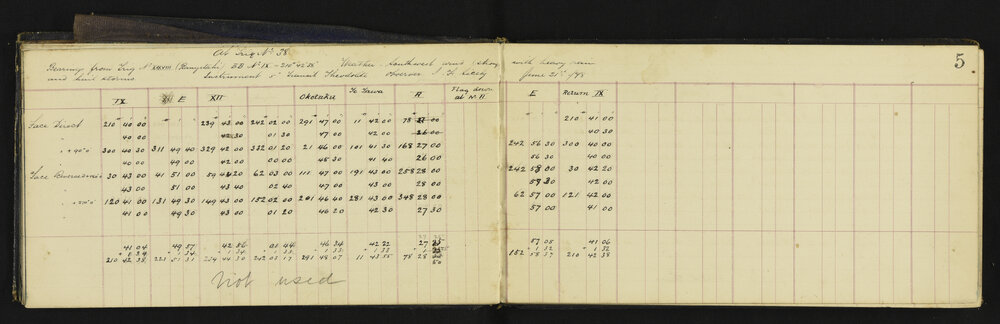 At Trig No 38
5
Bearings from Trig No XXXVIII (Rangitoto) BB No IX - 210° 42' 38" Weather - Southwest wind strong with heavy rain
and hail storms Instrument 5" Transit Theodolite Observer June 21st /98
IX XI E XII Okotuku To Tawa R Flag down at M.R. E Return IX
Face Direct 210 40 00 239 43 00 242 02 00 291 47 00 11 42 00 78 27 00 210 41 00
40 00 42 30 01 30 47 00 42 00 26 00 40 30
+90°0 300 40 30 311 49 40 329 42 00 332 01 20 21 46 00 101 41 30 168 27 00 242 56 30 300 40 00
40 00 49 00 42 00 00 00 45 30 41 40 26 00 56 30 40 00
Face Reversed 30 43 00 41 51 00 59 44 20 62 03 00 111 47 00 191 43 00 258 28 00 242 58 00 30 42 20
43 00 51 00 43 40 02 40 47 00 43 00 28 00 57 30 42 00
120 41 00 131 49 30 149 43 00 152 02 00 201 46 40 281 43 00 348 28 00 62 57 00 121 42 00
41 00 49 30 43 00 01 20 46 20 42 30 27 30 57 00 41 00
41 04 49 57 42 56 01 44 46 34 42 22 27 57 05 41 06
1 34 1 34 1 34 1 33 1 33 1 33 1 32 1 32
210 42 38 221 51 31 239 44 30 242 03 17 291 48 07 11 43 55 78 28 152 58 37 210 42 38
50
Not used